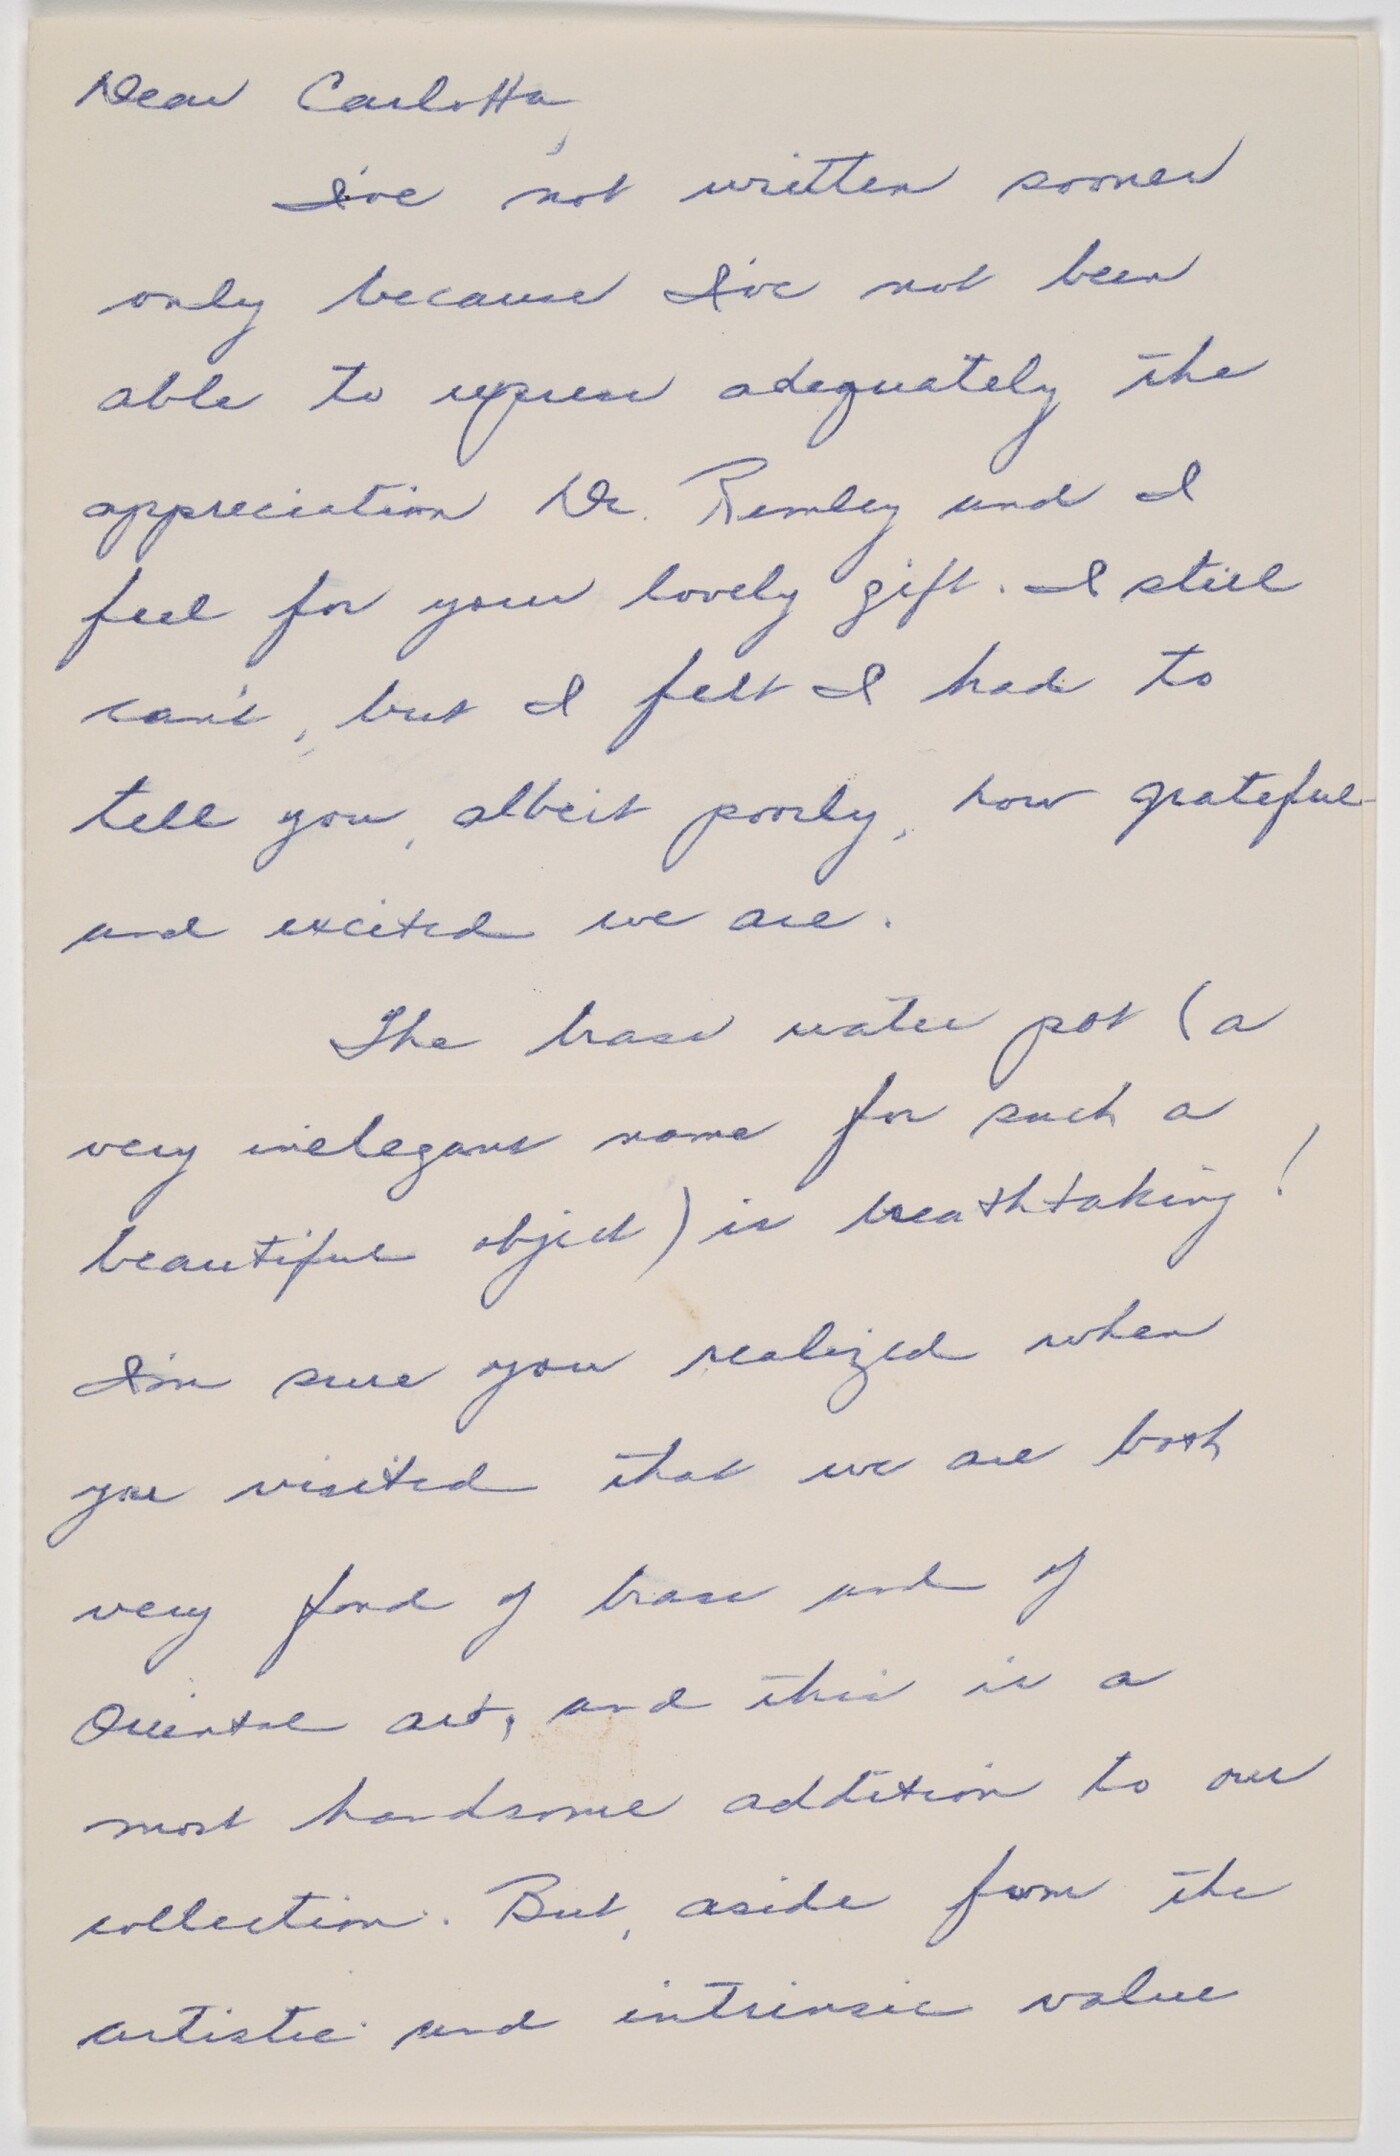 Dear Carlotta,
I've not written sooner
only because I've not been
able to express adequately the
appreciation Dr. Remley and I
feel for your lovely gift. I still
can't, but I felt I had to
tell you, albeit poorly, how grateful
and excited we are.
The brass water pot (a
very inelegant name for such a
beautiful object) is breathtaking!
I'm sure you realized when
you visited that we are both
very fond of brass and of
Oriental art, and this is a
most handsome addition to our
collection. But, aside from the
artistic and intrinsic value